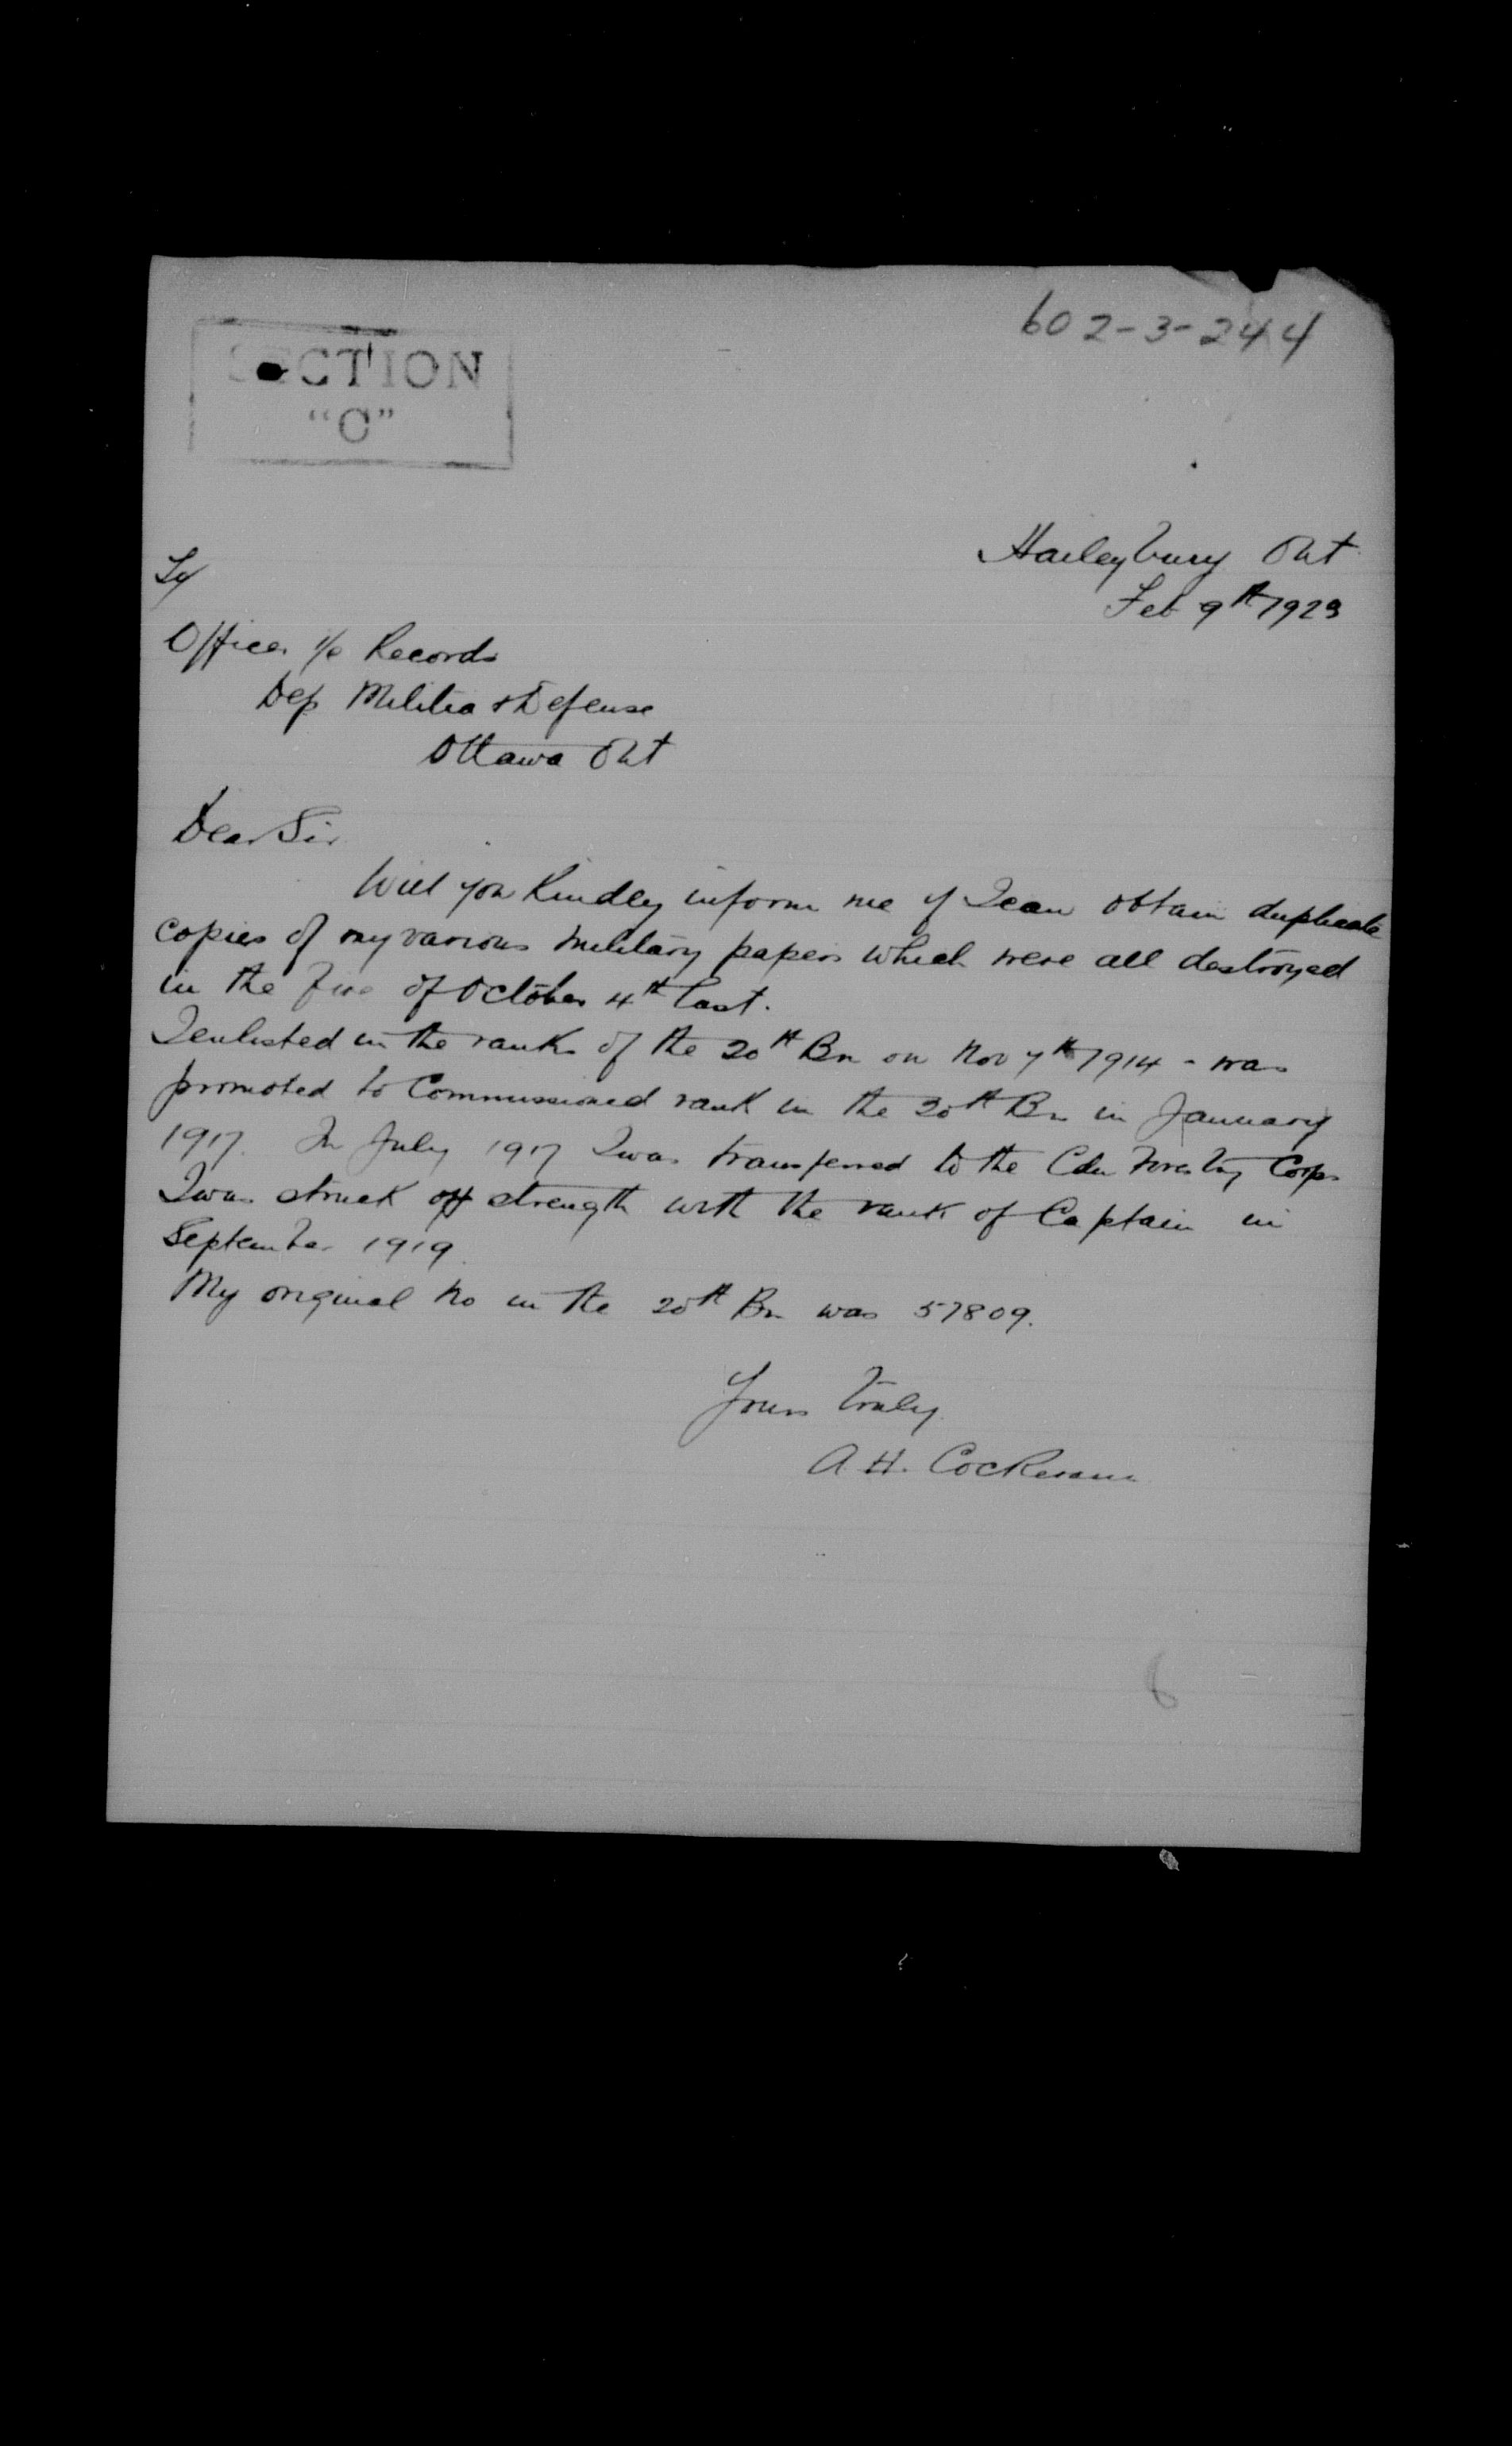 602-3-244
SECTION
"C"
Haileybury Ont
Feb 9th 1923
To/
Officer i/c Records
Dep Militia & Defense
Ottawa Ont
Dear Sir
Will you Kindly inform me if I can obtain duplicate
copies of my various military papers which were all destroyed
in the fire of October 4th last.
I enlisted in the ranks of the 20th Bn on Nov 7th 1914 - was
promoted to Commissioned rank in the 20th Bn in January
1917. In July 1917 I was transferred to the Cdn Forestry Corps
I was struck off strength with the rank of Captain in
September 1919.
My original No in the 20th Bn was 57809.
Yours truly
A. H.